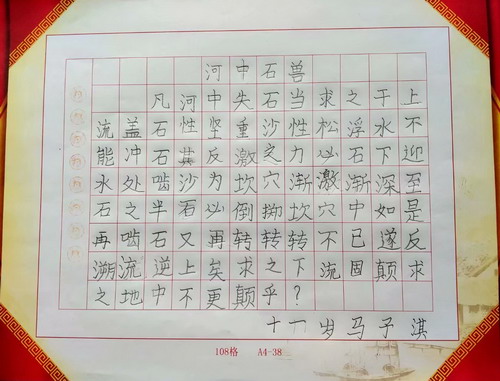 河中石兽
凡河中失石当求之于上
流盖石性坚重沙性松浮水不
能冲石其反激之力必石下迎
水处啮沙为坎穴渐激渐深至
石之半石必倒掷坎穴中如是
再啮石又再转转转不已遂反
溯流逆上矣求之下流固颠求
之地中不更颠乎？
十一岁马子淇
108格 A4-38